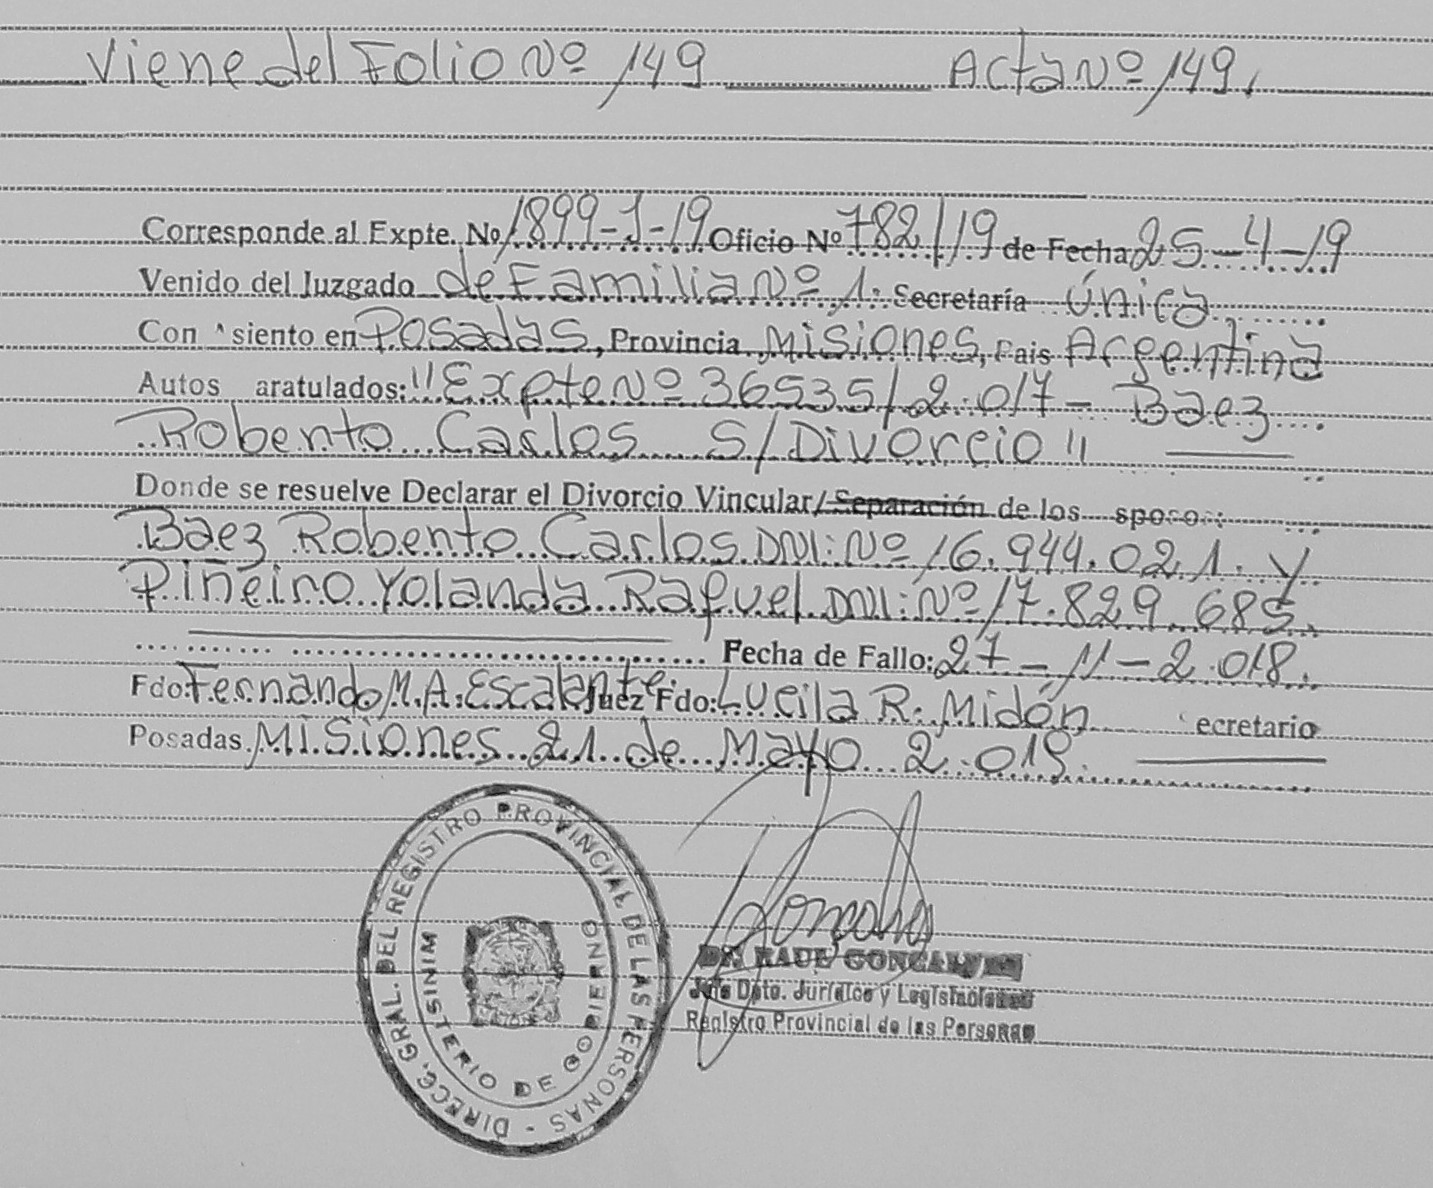 Viene del Folio Nº 149 Acta Nº 149.
Corresponde al Expte. Nº 1899-J-19 Oficio Nº 782/19 de Fecha 25-4-19
Venido del Juzgado de Familia Nº 1. Secretaría Única
Con ^siento en Posadas, Provincia Misiones, Pais Argentina
Autos aratulados: "Expte Nº 36535/2.017 - Baez
Robento Carlos S/Divorcio"
Donde se resuelve Declarar el Divorcio Vincular/Separación de los sposo
Baez Robento Carlos DNI: Nº 16.944.021. y
Piñeiro Yolanda Raquel DNI: Nº 17.829.685.
Fecha de Fallo: 27-11-2.018.
Fdo: Fernando M.A. Escalante Juez Fdo: Lucila R. Midón ecretario
Posadas. Misiones 21 de Mayo 2.019.
DIRECC. GRAL. DEL REGISTRO PROVINCIAL DE LAS PERSONAS -
MINISTERIO DE GOBIERNO
DR. RAUL GONCALVES
Jefe Dpto. Jurídico y Legislación
Registro Provincial de las Personas